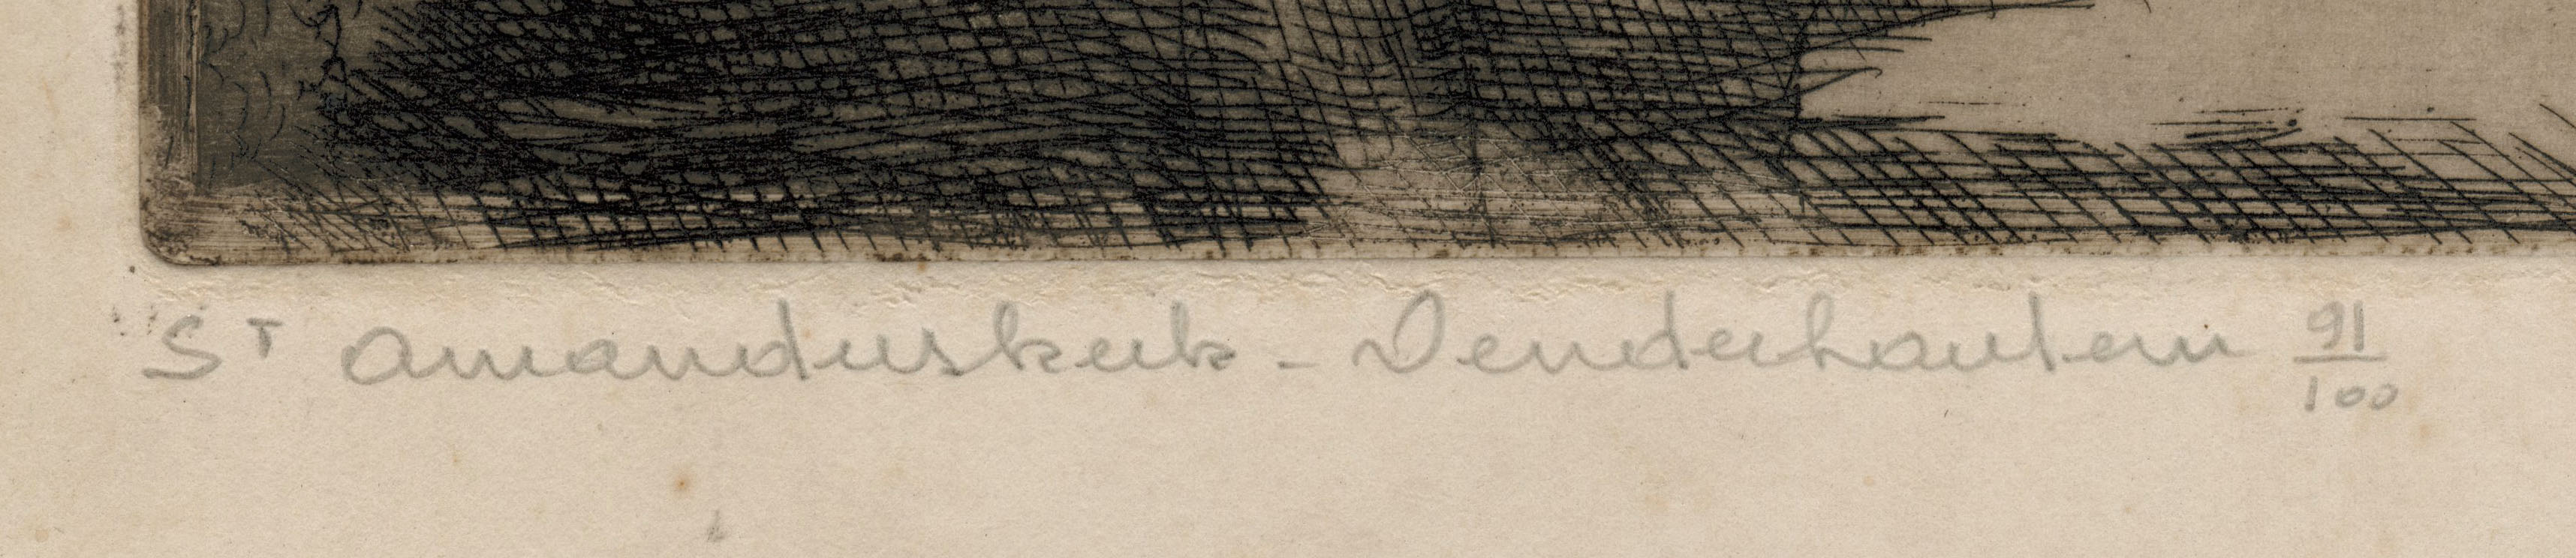 St Amanduskerk - Denderhoutem 91/100